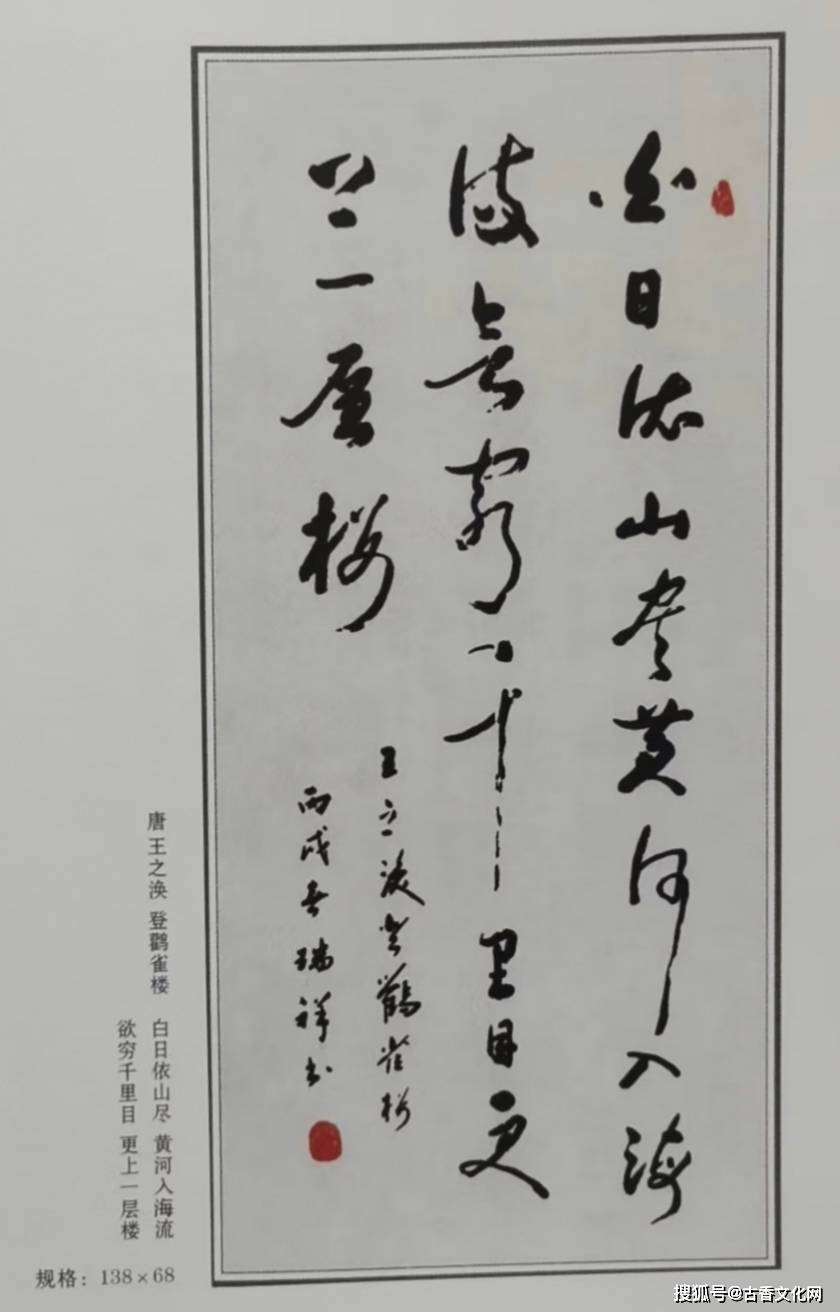 白日依山尽黄河入海
流欲穷千里目更
上一层楼
王之涣登鹳雀楼
丙戌春瑞祥书
唐 王之涣 登鹳雀楼 白日依山尽 黄河入海流
欲穷千里目 更上一层楼
规格：138×68
搜狐号@古香文化网